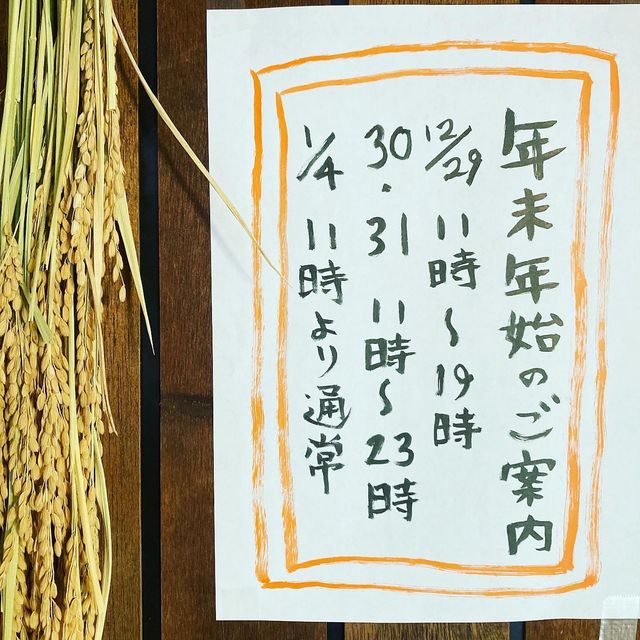 年末年始のご案内
12/29 11時〜19時
30・31 11時〜23時
1/4 11時より通常